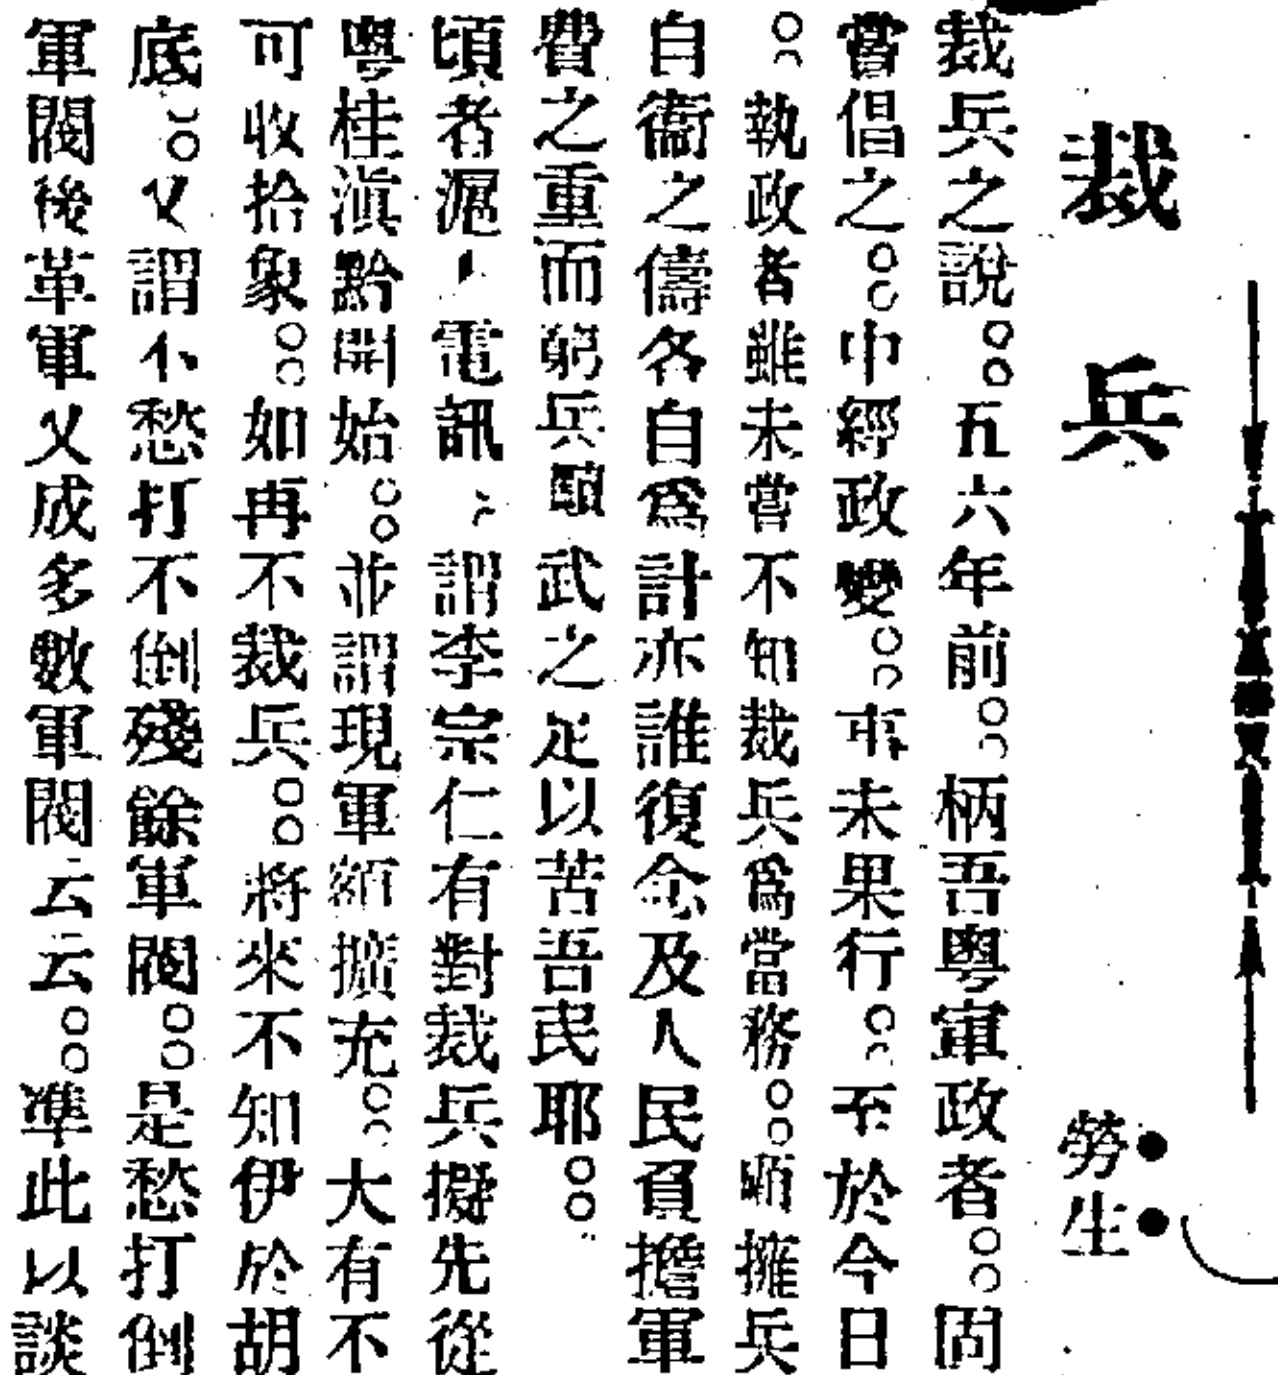 裁兵
勞生
裁兵之說。。五六年前。。柄吾粵軍政者。。固
嘗倡之。。中經政變。。事未果行。。至於今日
。。執政者雖未嘗不知裁兵爲當務。。顧擁兵
自衞之儔各自爲計亦誰復念及人民負擔軍
費之重而窮兵黷武之足以苦吾民耶。。
頃者滬電訊謂李宗仁有對裁兵擬先從
粵桂滇黔開始。。並謂現軍額擴充。。大有不
可收拾象。。如再不裁兵。。將來不知伊於胡
底。。又謂不愁打不倒殘餘軍閥。。是愁打倒
軍閥後革軍又成多數軍閥云云。。準此以談